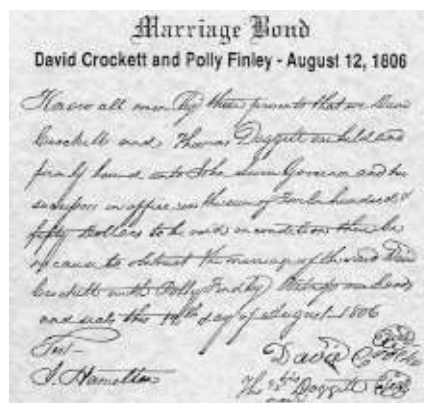 Marriage Bond
David Crockett and Polly Finley - August 12, 1806
Know all men by these presents that we David
Crockett and Thomas Doggett are held and
firmly bound unto John Sevier Governor and his
successors in office in the sum of Twelve hundred &
fifty Dollars to be void on condition there be
no cause to obstruct the marriage of the said David
Crockett with Polly Findley Witness our hands
and seals this 12th day of August 1806
Test-
David Crockett
J. Hamelton
Thos Doggett